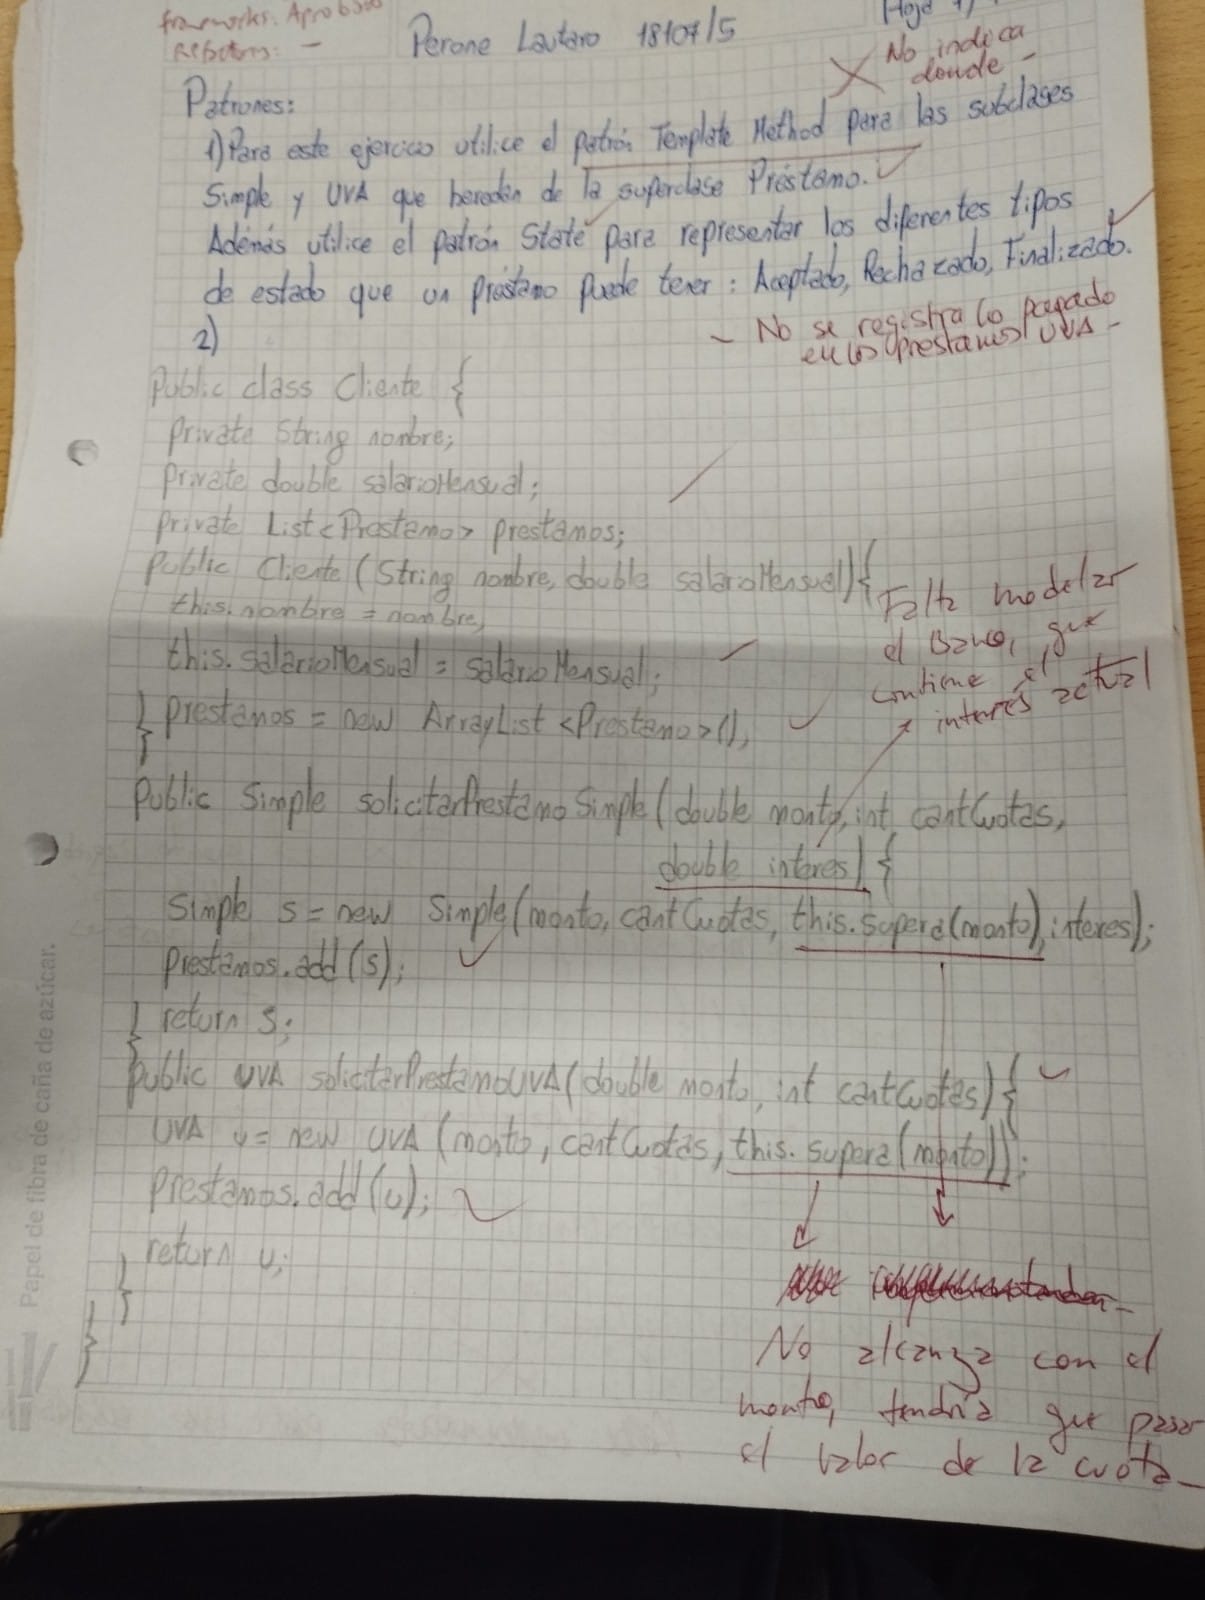 frameworks: Aprobado
Refactoring: —
Perone Lautaro 18107/5
Hoja 1/
No indica
donde -
Patrones:
1) Para este ejercicio utilice el patrón Template Method para las subclases
Simple y UVA que heredan de la superclase Préstamo.
Además utilice el patrón State para representar los diferentes tipos
de estado que un préstamo puede tener: Aceptado, Rechazado, Finalizado.
- No se registra lo pagado
en los prestamos UVA -
2)
Public class Cliente {
private String nombre;
private double salarioMensual;
private List<Prestamo> prestamos;
Public Cliente (String nombre, double salarioMensual){
this.nombre = nombre;
this.salarioMensual = salarioMensual;
prestamos = new ArrayList <Prestamo>();
}
Falta modelar
el Banco, que
contiene el
interés actual
Public Simple solicitarPrestamoSimple(double monto, int cantCuotas,
double interes) {
Simple s = new Simple(monto, cantCuotas, this.supera(monto), interes);
prestamos.add(s);
return s;
}
Public UVA solicitarPrestamoUVA(double monto, int cantCuotas) {
UVA u = new UVA (monto, cantCuotas, this.supera(monto));
prestamos.add(u);
return u;
}
}
No alcanza con el
monto, tendría que pasar
el valor de la cuota -
Papel de fibra de caña de azúcar.